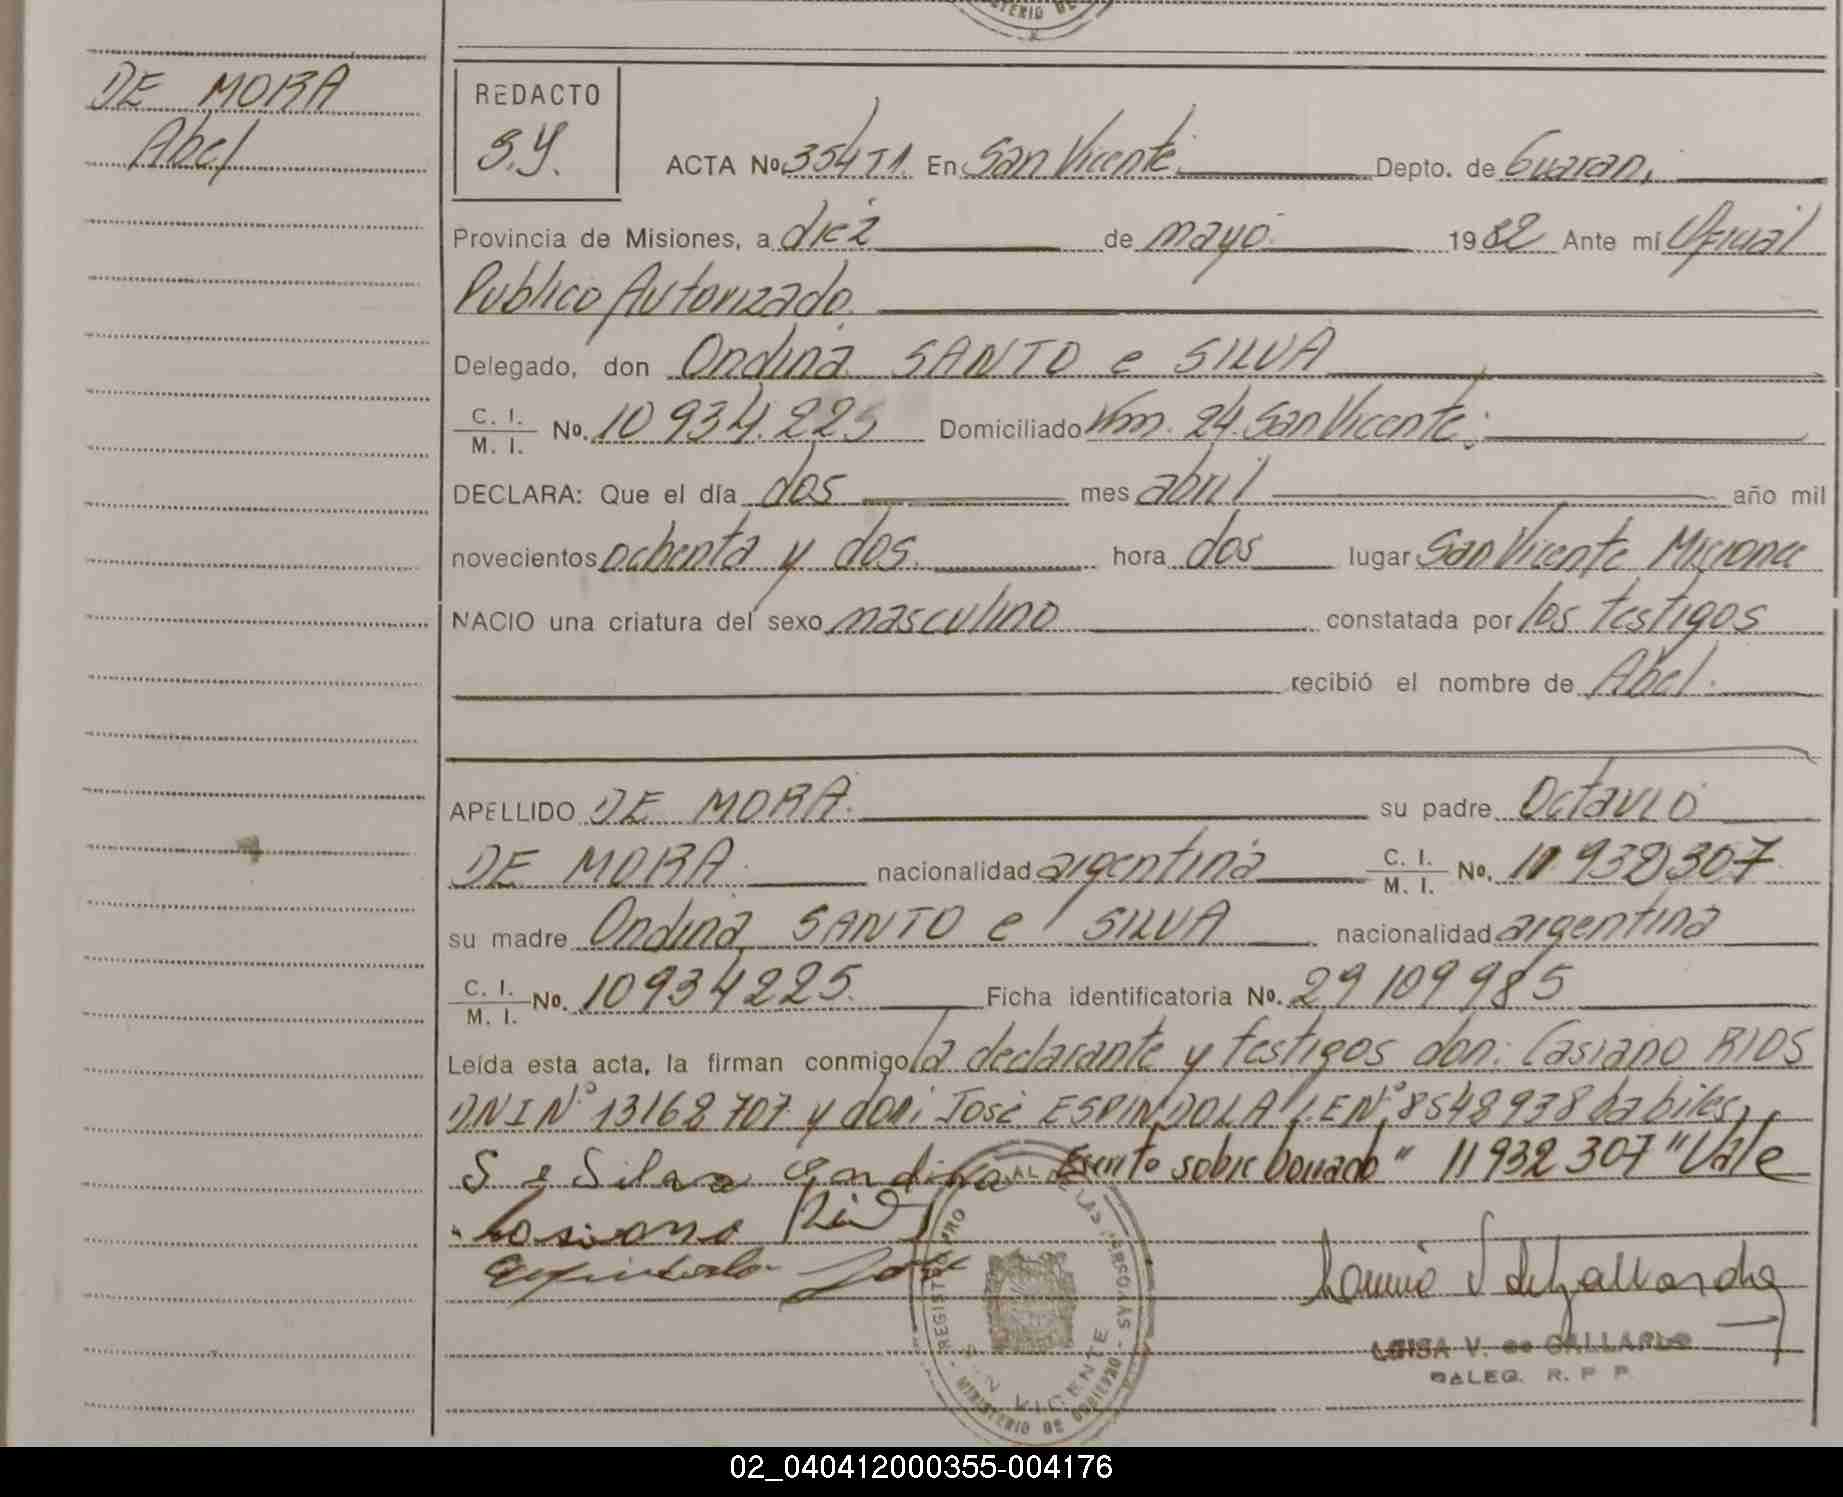 DE MORA
Abel
REDACTO
S.Y.
ACTA No. 354 T1. En San Vicente. Depto. de Guaraní
Provincia de Misiones, a diez de mayo 1982 Ante mí Oficial
Publico Autorizado.
Delegado, don Ondina SANTO e SILVA
C. I.
M. I. No. 10 934.225 Domiciliado Km. 24. San Vicente.
DECLARA: Que el día dos mes abril año mil
novecientos ochenta y dos. hora dos lugar San Vicente Misiones
NACIO una criatura del sexo masculino constatada por los testigos
recibió el nombre de Abel.
APELLIDO DE MORA. su padre Octavio
DE MORA. nacionalidad argentina C. I. M. I. No. 11 932 307
su madre Ondina SANTO e SILVA nacionalidad argentina
C. I. M. I. No. 10934225. Ficha identificatoria No. 29 109 985
Leída esta acta, la firman conmigo la declarante y testigos don: Casiano RIOS
DNI Nº 13168707 y don: José ESPINDOLA L.E Nº 8548938 habiles.
S e Silva Ondina Escrito sobre borrado " 11932 307 " Vale
Casiano Rios
Espindola José
REGISTRO PRO AL DE LAS PERSONAS
SAN VICENTE
MINISTERIO DE GOBIERNO
LUISA V. de GALLARDO
DALEG. R. P P
02_040412000355-004176